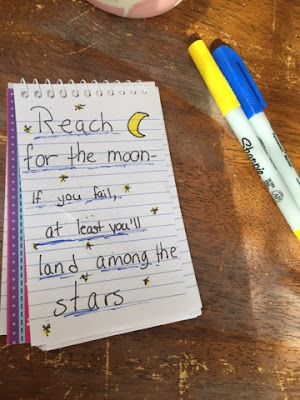 Reach
for the moon-
If you fail,
at least you'll
land among the
stars
Sharpie